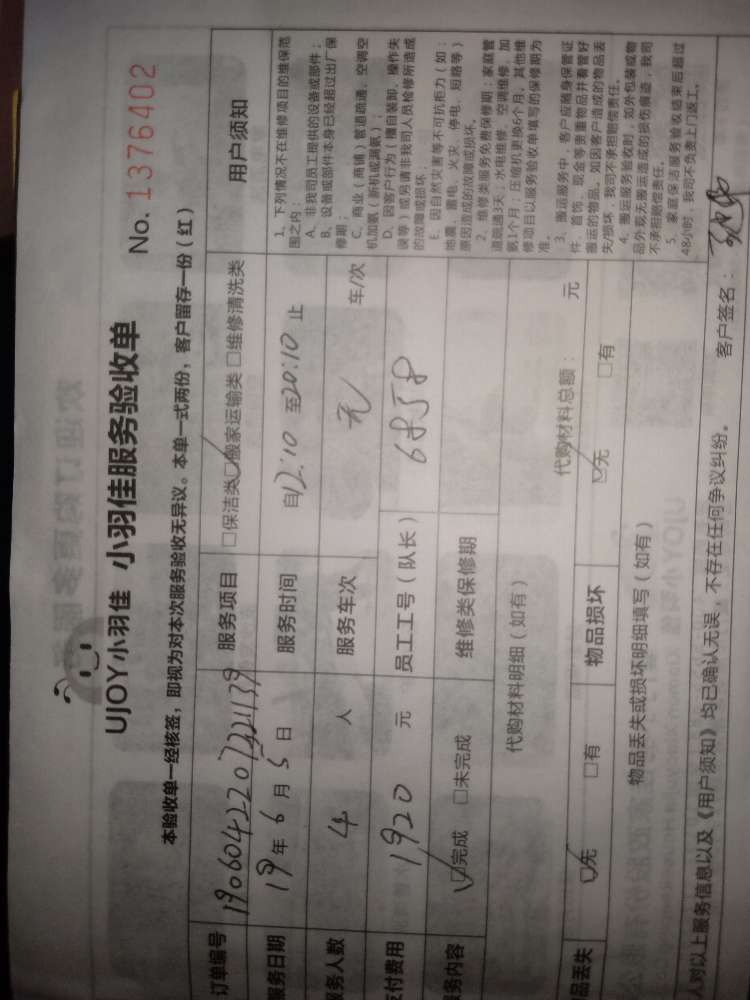 UJOY小羽佳 小羽佳服务验收单
No. 1376402
本验收单一经核签，即视为对本次服务验收无异议。本单一式两份，客户留存一份（红）
订单编号
服务项目 □保洁类 ☑搬家运输类 □维修清洗类
服务日期 19年6月5日
服务时间 自12:10至20:10止
服务人数 4 人
服务车次 无 车/次
支付费用 1920 元
员工工号（队长） 6858
服务内容 ☑完成 □未完成
维修类保修期
代购材料明细（如有）
代购材料总额： 元
物品丢失 ☑无 □有
物品损坏 ☑无 □有
物品丢失或损坏明细填写（如有）
用户须知
1、下列情况不在维修项目的维保范
围之内：
A、非我司员工提供的设备或部件；
B、设备或部件本身已经超过出厂保
修期；
C、商业（商铺）管道疏通、空调空
机加氨（新机或漏氨）；
D、因客户行为（擅自装卸、操作失
误等）或另请非我司人员检修所造成
的故障或损坏；
E、因自然灾害等不可抗拒力（如：
地震、雷电、火灾、停电、短路等）
原因造成的故障或损坏。
2、维修类服务免费保修期：家庭管
道疏通3天；水电维修、空调维修、加
氨1个月；压缩机更换6个月，其他维
修项目以服务验收单填写的保修期为
准。
3、搬运服务中，客户应随身保管证
件、首饰、现金等贵重物品并看管好
搬运的物品。如因客户造成的物品丢
失/损坏，我司不承担赔偿责任。
4、搬运服务验收时，如外包装或物
品外观无搬运造成的损伤痕迹，我司
不承担赔偿责任。
5、家庭保洁服务验收结束后超过
48小时，我司不负责上门返工。
人对以上服务信息以及《用户须知》均已确认无误，不存在任何争议纠纷。
客户签名：